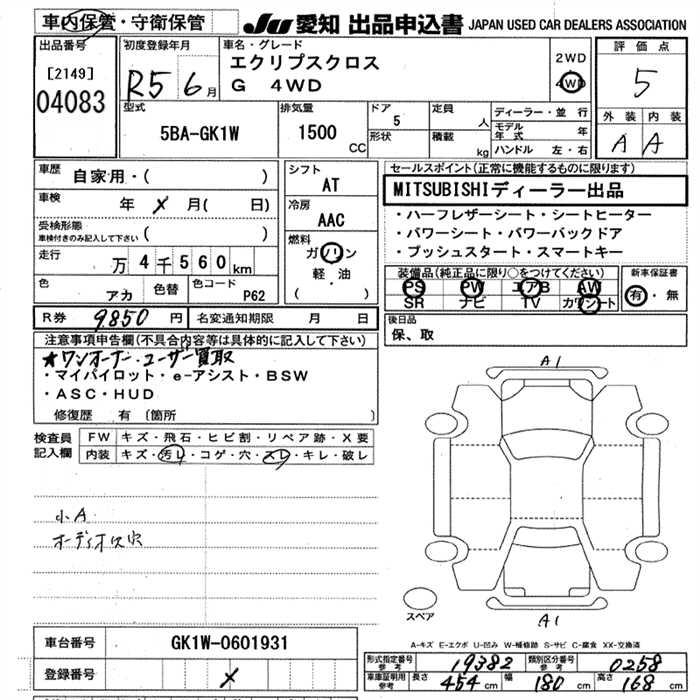 車内保管・守衛保管
JU 愛知 出品申込書 JAPAN USED CAR DEALERS ASSOCIATION
出品番号
[2149]
04083
初度登録年月
R5 6月
車名・グレード
エクリプスクロス
G 4WD
2WD
4WD
評価点
5
外装 内装
A A
型式
5BA-GK1W
排気量
1500 CC
ドア
5
形状
定員
人
積載
kg
ディーラー・並行
モデル年式 年
ハンドル 左・右
車歴
自家用・( )
車検
年 × 月( 日)
受検形態
車検付きのみ記入して下さい ( )
走行
万4千560km
色
アカ
色替
色コード
P62
シフト
AT
冷房
AAC
燃料
ガソリン
軽・油
( )
セールスポイント(正常に機能するものに限ります)
MITSUBISHIディーラー出品
・ハーフレザーシート・シートヒーター
・パワーシート・パワーバックドア
・プッシュスタート・スマートキー
装備品(純正品に限り○をつけてください)
PS PW エアB AW
SR ナビ TV カワシート
新車保証書
有・無
R券 9,850 円
名変通知期限 月 日
後日品
保、取
注意事項申告欄(不具合内容等は具体的に記入して下さい)
★ワンオーナー・ユーザー買取
・マイパイロット・e-アシスト・BSW
・ASC・HUD
修復歴 有 〔箇所
検査員記入欄
FW キズ・飛石・ヒビ割・リペア跡・X要
内装 キズ・汚れ・コゲ・穴・スレ・キレ・破レ
小A
A1
スペア
A1
A-キズ E-エクボ U-凹み W-補修跡 S-サビ C-腐食 XX-交換済
車台番号 GK1W-0601931
登録番号 ×
形式指定番号 参考 19382
類別区分番号 参考 0258
車庫証明用参考 長さ 454 cm 幅 180 cm 高さ 168 cm